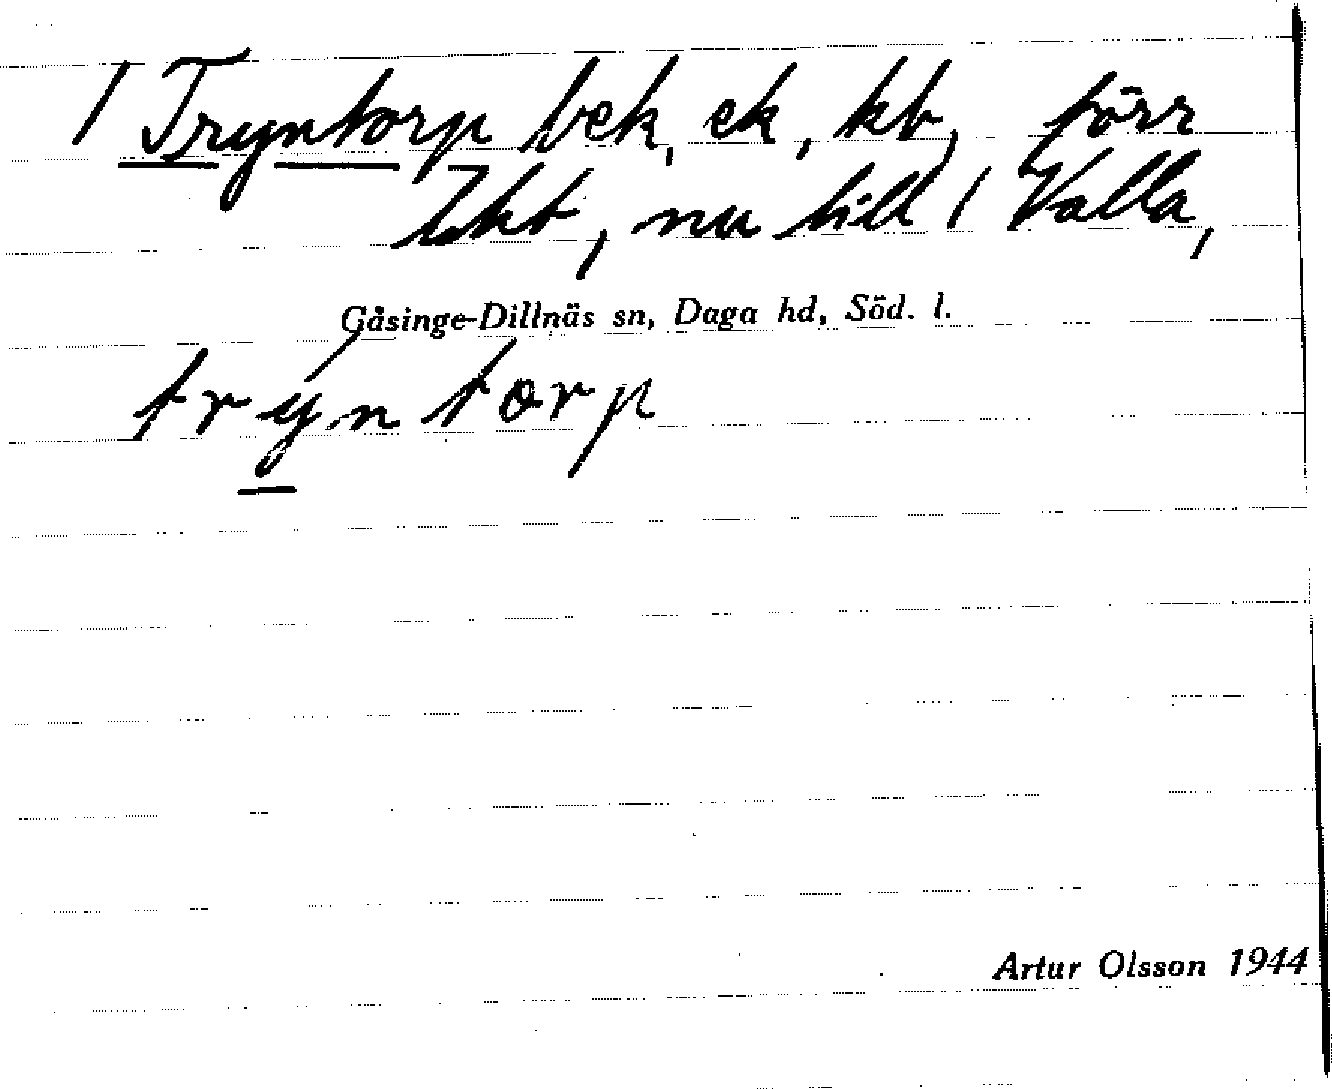 / Tryntorp bek, ek, kb, förr
lht, nu till / Valla,
Gåsinge-Dillnäs sn, Daga hd, Söd. l.
trýntorp
Artur Olsson 1944